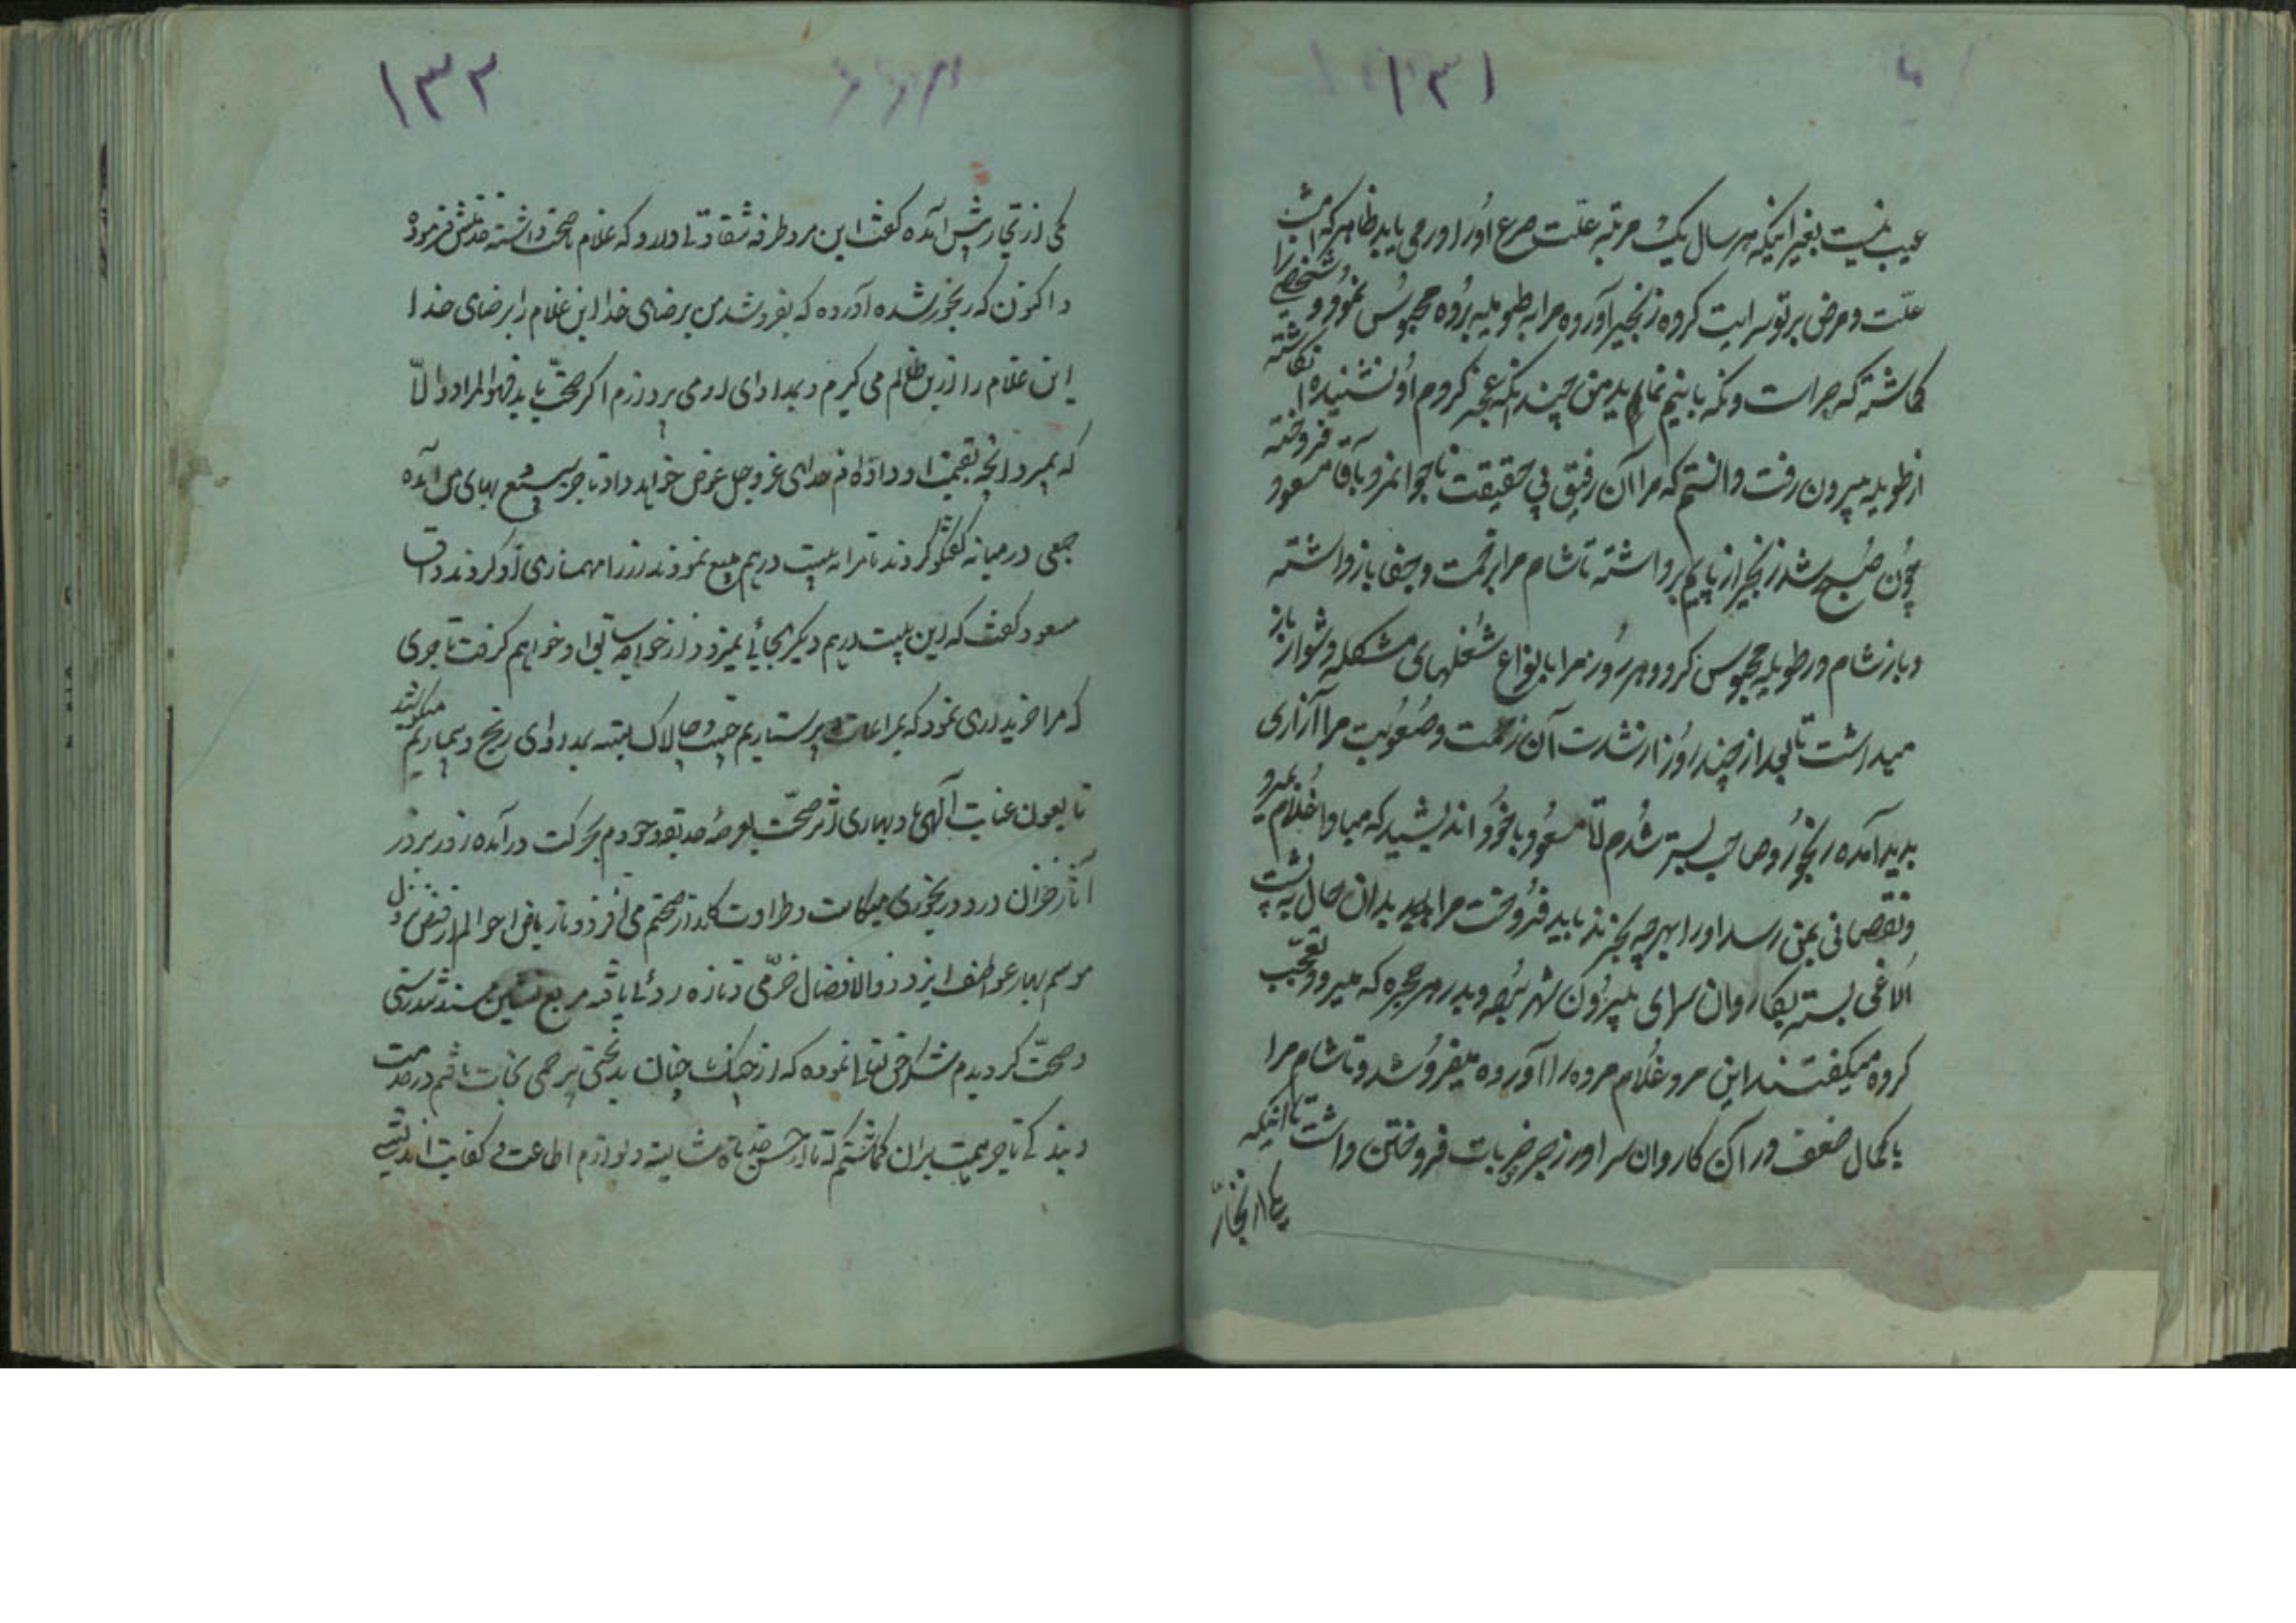 ۱۳۱
عیب نیست بغیر اینکه هر سال یک مرتبه علت صرع او را در می یابد ظاهر که امشب
علت و مرض بر تو سرایت کرده زنجیر آورده مرا به طویله برده محبوس نمود و شخصی را
کماشته که حراست و نکه بانیم نماید من چندانکه عجز کردم او نشنیده انکاشته
از طویله بیرون رفت دانستم که مرا آن رفیق بی حقیقت ناجوانمرد بآقا مسعود فروخته
چون صبح شد زنجیر از پایم برداشته تا شام مرا بزحمت و جفا بازداشته
و باز شام در طویله محبوس کرد و هر روز مرا بانواع شغلهای مشکله و شوار باز
میداشت تا بعد از چند روز از شدت آن زحمت و صعوبت مرا آزاری
پدید آمده رنجور و صاحب بستر شدم تا مسعود با خود اندیشید که مبادا غلام بمیرد
و نقصانی بمن رسد او را بهر چه بخرند باید فروخت مرا بدان حال به پشت
الاغی بسته بکاروان سرای بیرون شهر برد و بدر هر حجره که میبرد تعجب
کرده میکفتند این مرد غلام مرده را آورده میفروشد و تا شام مرا
با کمال ضعف در آن کاروان سرا در زجر فروختن داشت تا اینکه
یکی از تجار
۱۳۲
یکی از تجار پیش آمده کفت این مرد طرفه شقاوتی دارد که غلام تا صحت داشته خدمتش فرموده
و اکنون که رنجور شده آورده که بفروشد من برضای خدا این غلام را برضای خدا
این غلام را ازین ظالم می کیرم و بمداوای او می پردازم اگر صحت یابد فهو المراد والا
که بمیرد آنچه بقیمت او داده ام خدای عز و جل عوض خواهد داد تاجر ببیع بهای من آمده
جمعی در میانه کفتکو کردند تا مرا به بیست درهم بیع نمودند زر را مهمانداری او کردند و آقا
مسعود کفت که این بیست درهم دیگر بجائی نمیرود از خواجه تو خواهم کرفت تاجری
که مرا خریداری نمود که بمراعات پرستاریم چست و چالاک بسته بمداوای رنج و بیماریم میکوشید
تا بعون عنایت آلهی باد بهاری اثر صحت بعرصه حدیقه وجودم بحرکت در آمده روز بروز
آثار خزان درد و رنجوری میکاست و طراوت کلزار صحتم می افزود تا ریاض احوالم از فیض نزول
موسم بهار عواطف ایزد ذوالافضال خرمی و تازه روئی یافته مربع نشین مسند تندرستی
و صحت کردیدم شکر حق تعالی نموده که از چنک چنان بدبختی بیرحمی نجات یافتم در خدمت
و بندکی تاجر همت بران کماشتم که تا از حسن خدمات شایسته و لوازم اطاعت و کفایت اندیشی